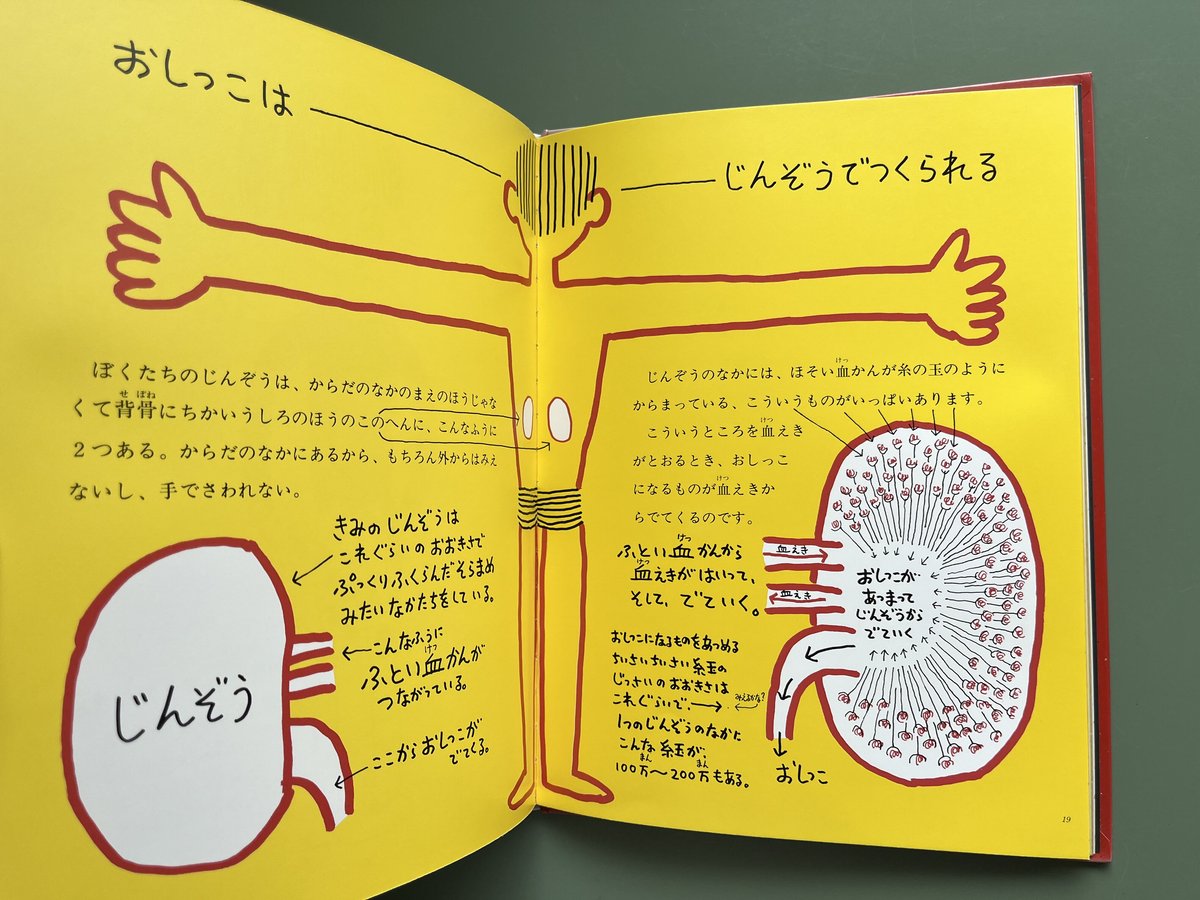 おしっこは
じんぞうでつくられる
ぼくたちのじんぞうは、からだのなかのまえのほうじゃな
くて背骨にちかいうしろのほうのこのへんに、こんなふうに
２つある。からだのなかにあるから、もちろん外からはみえ
ないし、手でさわれない。
きみの じんぞうは
これぐらいの おおきさで
ぷっくりふくらんだそらまめ
みたいなかたちをしている。
こんなふうに
ふとい血かんが
つながっている。
ここから おしっこが
でてくる。
じんぞう
じんぞうのなかには、ほそい血かんが糸の玉のように
からまっている、こういうものがいっぱいあります。
こういうところを血えき
がとおるとき、おしっこ
になるものが血えきか
らでてくるのです。
ふとい血かんから
血えきがはいって、
そして、でていく。
血えき
血えき
おしっこが
あつまって
じんぞうから
でていく
おしっこになるものをあつめる
ちいさいちいさい糸玉の
じっさいのおおきさは
これぐらいで、
みえるかな？
1つのじんぞうのなかに
こんな糸玉が、
100万〜200万もある。
おしっこ
19